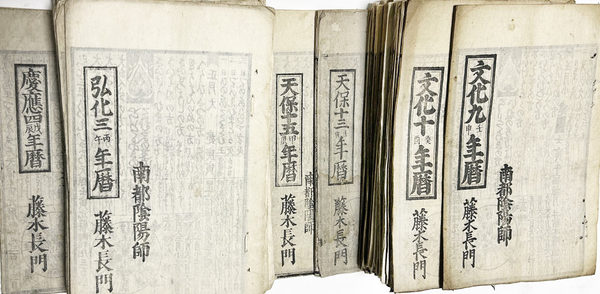 南都陰陽師
文化九壬申年暦
藤木長門
文化十癸酉年暦
藤木長門
天保十三年暦
藤木長門
南都陰陽師
天保十五甲辰年暦
藤木長門
南都陰陽師
弘化三丙午年暦
藤木長門
慶應四戊辰年暦
藤木長門